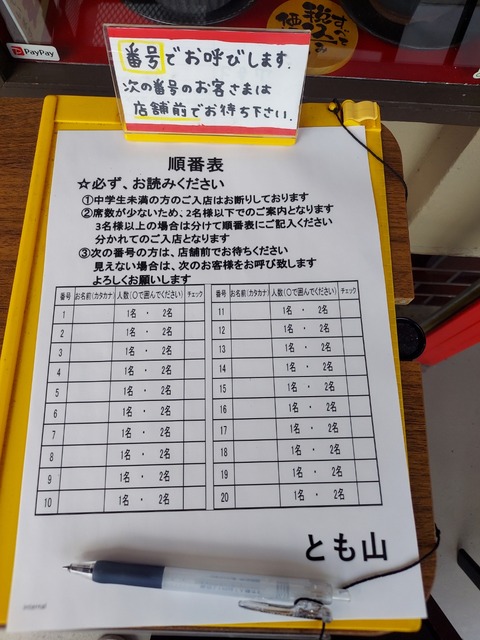 PayPay
番号でお呼びします.
次の番号のお客さまは
店舗前でお待ち下さい.
順番表
☆必ず、お読みください
①中学生未満の方のご入店はお断りしております
②席数が少ないため、2名様以下でのご案内となります
3名様以上の場合は分けて順番表にご記入ください
分かれてのご入店となります
③次の番号の方は、店舗前でお待ちください
見えない場合は、次のお客様をお呼び致します
よろしくお願いします
番号 お名前(カタカナ) 人数(○で囲んでください) チェック 番号 お名前(カタカナ) 人数(○で囲んでください) チェック
1 1名 ・ 2名 11 1名 ・ 2名
2 1名 ・ 2名 12 1名 ・ 2名
3 1名 ・ 2名 13 1名 ・ 2名
4 1名 ・ 2名 14 1名 ・ 2名
5 1名 ・ 2名 15 1名 ・ 2名
6 1名 ・ 2名 16 1名 ・ 2名
7 1名 ・ 2名 17 1名 ・ 2名
8 1名 ・ 2名 18 1名 ・ 2名
9 1名 ・ 2名 19 1名 ・ 2名
10 1名 ・ 2名 20 1名 ・ 2名
とも山